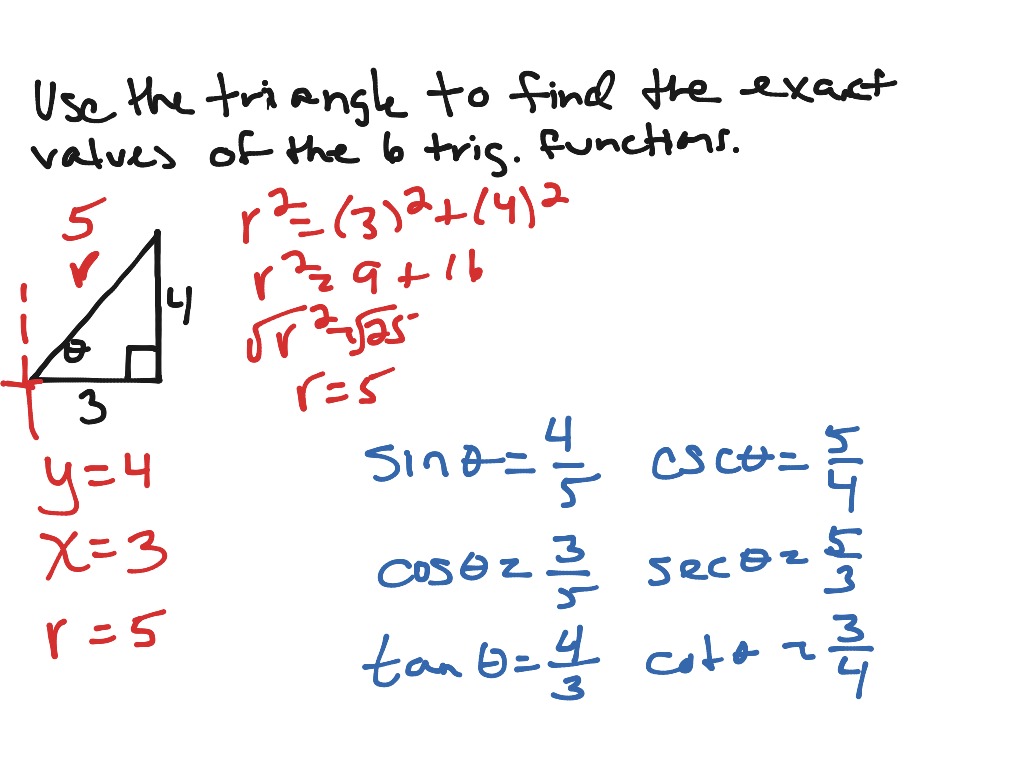 Use the triangle to find the exact
values of the 6 trig. functions.
5
r
4
θ
3
r² = (3)² + (4)²
r² = 9 + 16
√r² = √25
r = 5
y = 4
x = 3
r = 5
sin θ = 4/5 csc θ = 5/4
cos θ = 3/5 sec θ = 5/3
tan θ = 4/3 cot θ = 3/4